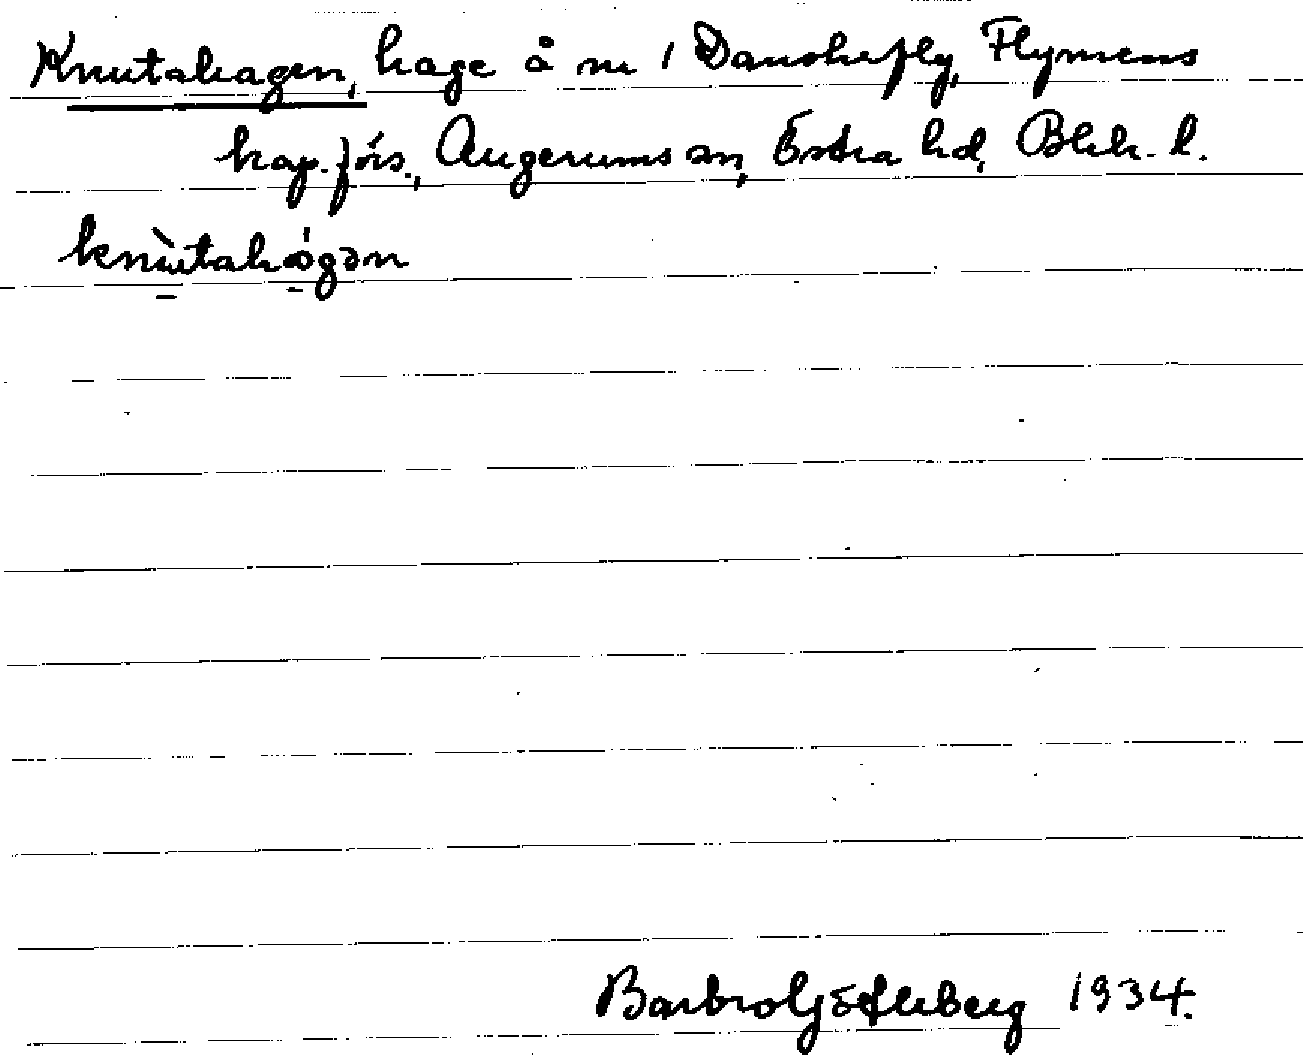 Knutahagen, hage å nr 1 Danskefly, Flymens
kap. förs., Augerums sn, Östra hd, Blek. l.
knùtahágən
Barbro Ljófteberg 1934.